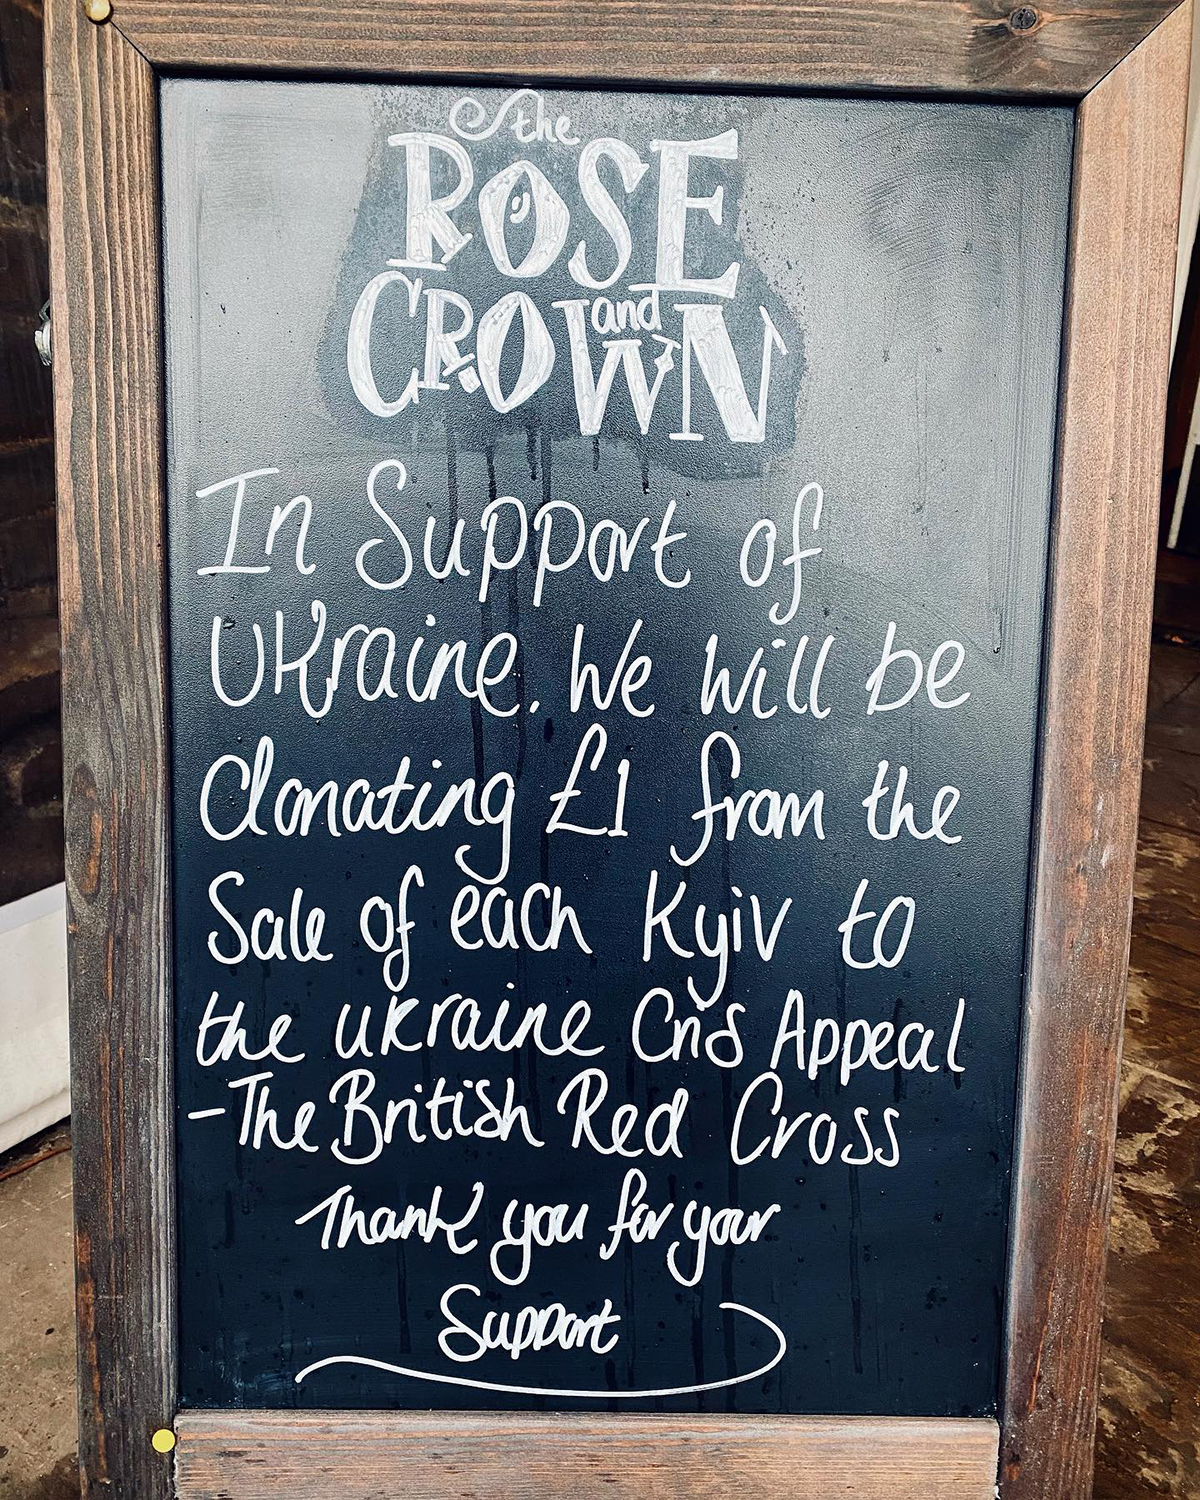 the
ROSE
and
CROWN
In Support of
Ukraine. We will be
donating £1 from the
Sale of each Kyiv to
the ukraine Cris Appeal
-The British Red Cross
Thank you for your
Support